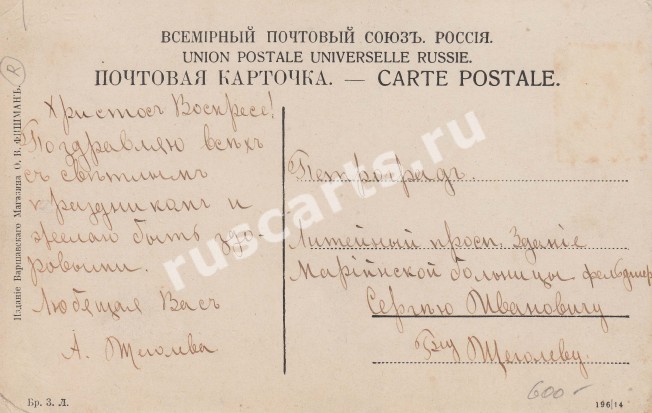 ВСЕМІРНЫЙ ПОЧТОВЫЙ СОЮЗЪ. РОССІЯ.
UNION POSTALE UNIVERSELLE RUSSIE.
ПОЧТОВАЯ КАРТОЧКА. — CARTE POSTALE.
R
Изданіе Варшавскаго Магазина О. В. ФИШМАНЪ.
Христосъ Воскресе!
Поздравляю всѣхъ
съ свѣтлымъ
праздникомъ и
желаю быть здо-
ровыми.
Любящая Васъ
А. Щеголева
Петроградъ.
Литейный просп. Зданіе
Маріинской больницы фельдшер
Сергѣю Ивановичу
Щеголеву.
600-
Бр. З. Л.
196/14
ruscarts.ru